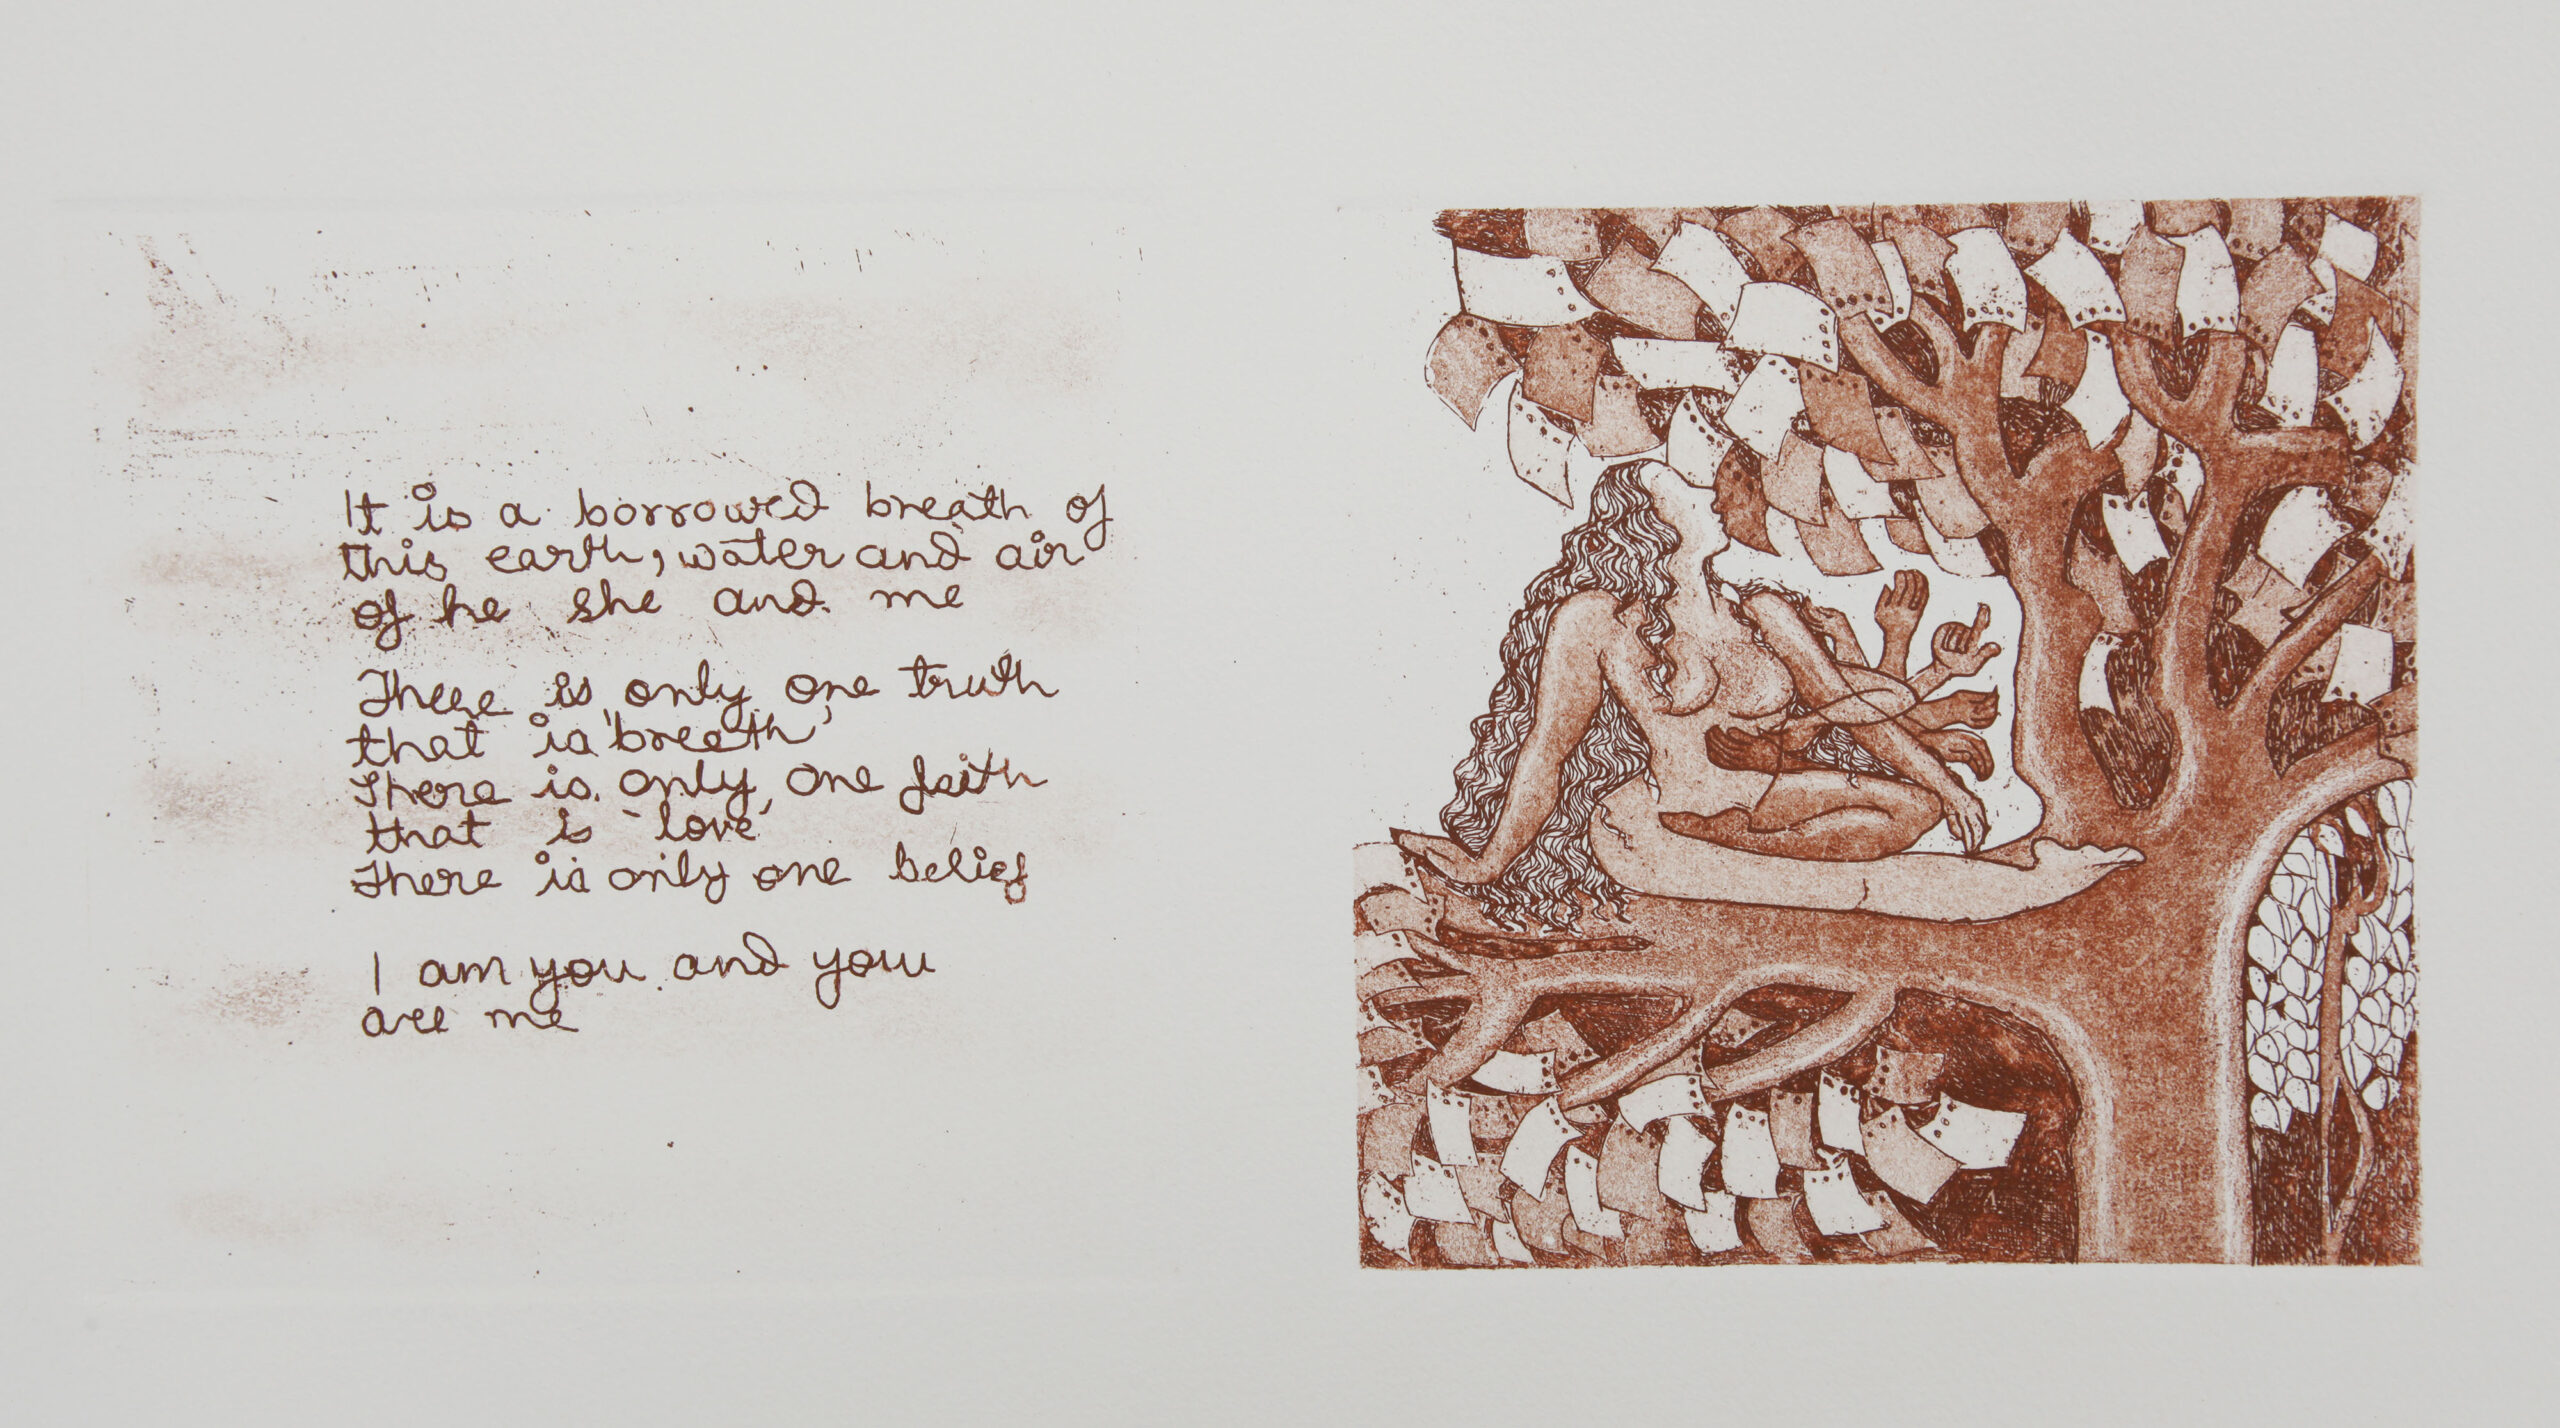 It is a borrowed breath of
this earth, water and air
of he she and me
There is only one truth
that is 'breath'
There is only one faith
that is 'love'
There is only one belief
I am you and you
are me